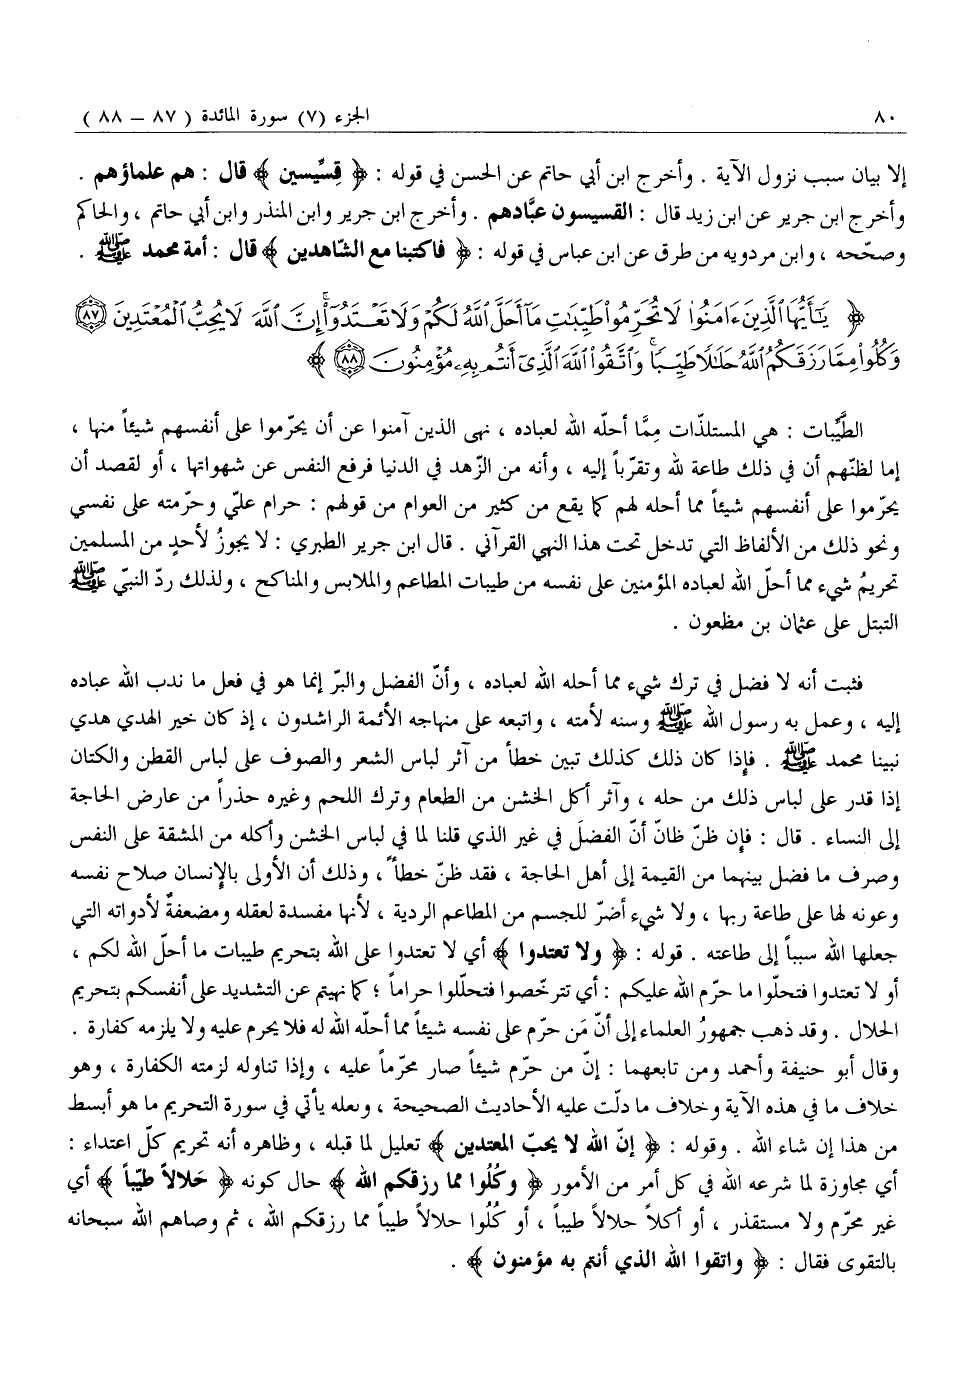 ٨٠ الجزء (٧) سورة المائدة ( ٨٧ – ٨٨ )
إلا بيان سبب نزول الآية . وأخرج ابن أبي حاتم عن الحسن في قوله : ﴿ قِسِّيسين ﴾ قال : هم علماؤهم .
وأخرج ابن جرير عن ابن زيد قال : القسيسون عبَّادهم . وأخرج ابن جرير وابن المنذر وابن أبي حاتم ، والحاكم
وصحّحه ، وابن مردويه من طرق عن ابن عباس في قوله : ﴿ فاكتبنا مع الشّاهدين ﴾ قال : أمة محمد ﷺ .
﴿ يَٰٓأَيُّهَا ٱلَّذِينَ ءَامَنُوا۟ لَا تُحَرِّمُوا۟ طَيِّبَٰتِ مَآ أَحَلَّ ٱللَّهُ لَكُمْ وَلَا تَعْتَدُوٓا۟ ۚ إِنَّ ٱللَّهَ لَا يُحِبُّ ٱلْمُعْتَدِينَ ٨٧
وَكُلُوا۟ مِمَّا رَزَقَكُمُ ٱللَّهُ حَلَٰلًا طَيِّبًا ۚ وَٱتَّقُوا۟ ٱللَّهَ ٱلَّذِىٓ أَنتُم بِهِۦ مُؤْمِنُونَ ٨٨ ﴾
الطيَّبات : هي المستلذّات مِمَّا أحله الله لعباده ، نهى الذين آمنوا عن أن يحرّموا على أنفسهم شيئاً منها ،
إما لظنّهم أن في ذلك طاعة لله وتقرّباً إليه ، وأنه من الزّهد في الدنيا فرفع النفس عن شهواتها ، أو لقصد أن
يحرّموا على أنفسهم شيئاً مما أحله لهم كما يقع من كثير من العوام من قولهم : حرام عليّ وحرّمته على نفسي
ونحو ذلك من الألفاظ التي تدخل تحت هذا النهي القرآني . قال ابن جرير الطبري : لا يجوزُ لأحدٍ من المسلمين
تحريمُ شيء مما أحلّ الله لعباده المؤمنين على نفسه من طيبات المطاعم والملابس والمناكح ، ولذلك ردّ النبيّ ﷺ
التبتل على عثمان بن مظعون .
فثبت أنه لا فضل في ترك شيء مما أحله الله لعباده ، وأنّ الفضل والبرّ إنما هو في فعل ما ندب الله عباده
إليه ، وعمل به رسول الله ﷺ وسنه لأمته ، واتبعه على منهاجه الأئمة الراشدون ، إذ كان خير الهدي هدي
نبينا محمد ﷺ . فإذا كان ذلك كذلك تبين خطأ من آثر لباس الشعر والصوف على لباس القطن والكتان
إذا قدر على لباس ذلك من حله ، وآثر أكل الخشن من الطعام وترك اللحم وغيره حذراً من عارض الحاجة
إلى النساء . قال : فإن ظنّ ظانّ أنّ الفضلَ في غير الذي قلنا لما في لباس الخشن وأكله من المشقة على النفس
وصرف ما فضل بينهما من القيمة إلى أهل الحاجة ، فقد ظنّ خطأً ، وذلك أن الأولى بالإنسان صلاح نفسه
وعونه لها على طاعة ربها ، ولا شيء أضرّ للجسم من المطاعم الردية ، لأنها مفسدة لعقله ومضعفةٌ لأدواته التي
جعلها الله سبباً إلى طاعته . قوله : ﴿ ولا تعتدوا ﴾ أي لا تعتدوا على الله بتحريم طيبات ما أحلّ الله لكم ،
أو لا تعتدوا فتحلّوا ما حرّم الله عليكم : أي تترخّصوا فتحلّلوا حراماً ؛ كما نهيتم عن التشديد على أنفسكم بتحريم
الحلال . وقد ذهب جمهورُ العلماء إلى أنّ مَن حرّم على نفسه شيئاً مما أحلّه الله له فلا يحرم عليه ولا يلزمه كفارة .
وقال أبو حنيفة وأحمد ومن تابعهما : إنّ من حرّم شيئاً صار محرّماً عليه ، وإذا تناوله لزمته الكفارة ، وهو
خلاف ما في هذه الآية وخلاف ما دلّت عليه الأحاديث الصحيحة ، ولعله يأتي في سورة التحريم ما هو أبسط
من هذا إن شاء الله . وقوله : ﴿ إنّ الله لا يحبّ المعتدين ﴾ تعليل لما قبله ، وظاهره أنه تحريم كلّ اعتداء :
أي مجاوزة لما شرعه الله في كل أمر من الأمور ﴿ وكُلُوا مما رزقكم الله ﴾ حال كونه ﴿ حَلالاً طيّباً ﴾ أي
غير محرّم ولا مستقذر ، أو أكلاً حلالاً طيباً ، أو كُلُوا حلالاً طيباً مما رزقكم الله ، ثم وصاهم الله سبحانه
بالتقوى فقال : ﴿ واتقوا الله الذي أنتم به مؤمنون ﴾ .